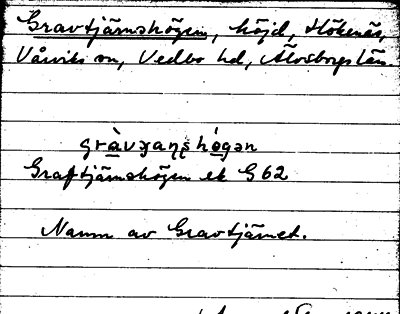 Gravtjärnshögen, höjd, Hökenäs,
Vårviks sn, Vedbo hd, Älvsborgs län
gràvʒaɳʂhö̀gən
Graftjärnshögen ek G62
Namn av Gravtjärnet.